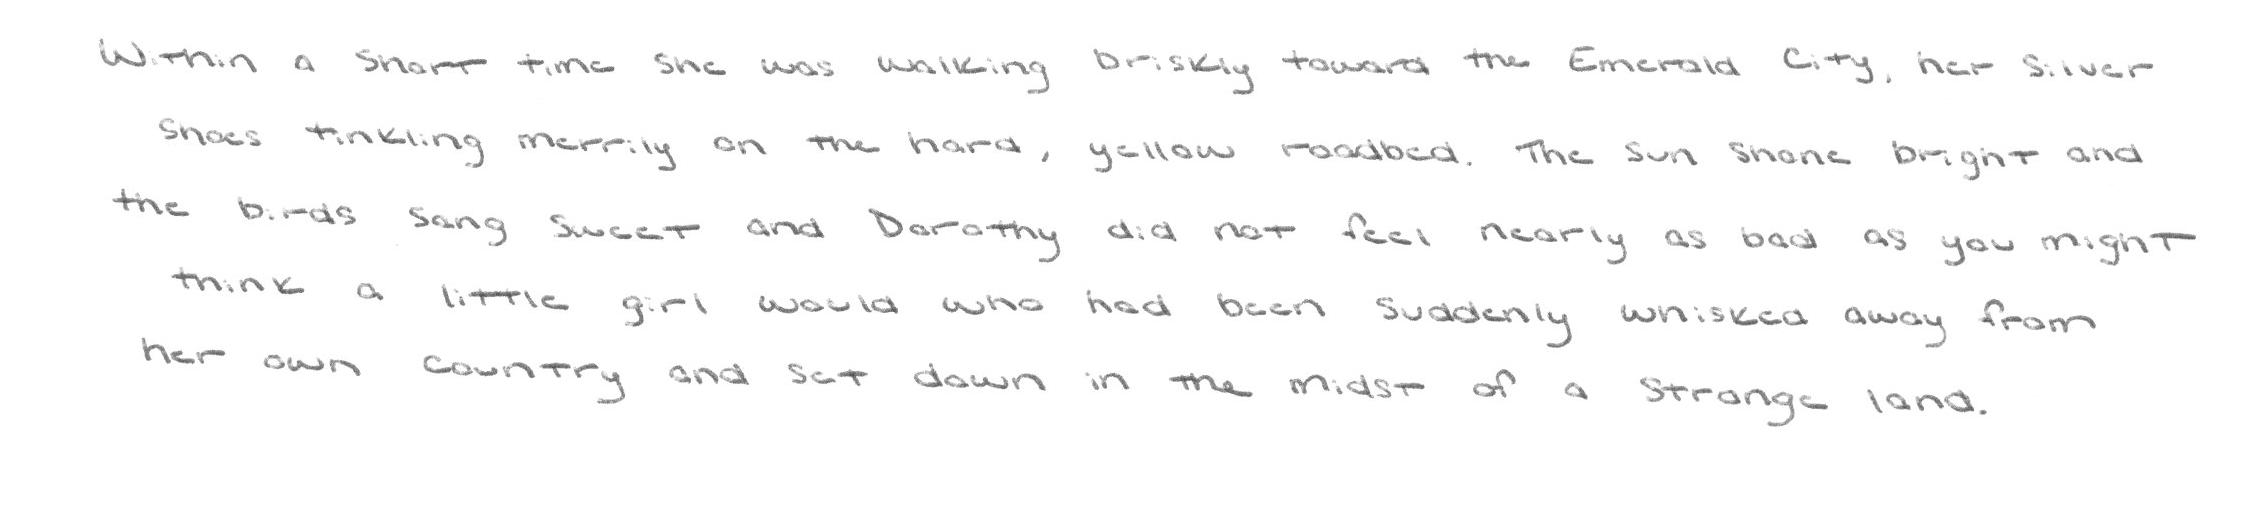 Within a short time she was walking briskly toward the Emerald City, her Silver
Shoes tinkling merrily on the hard, yellow roadbed. The sun shone bright and
the birds sang sweet and Dorothy did not feel nearly as bad as you might
think a little girl would who had been suddenly whisked away from
her own country and set down in the midst of a strange land.